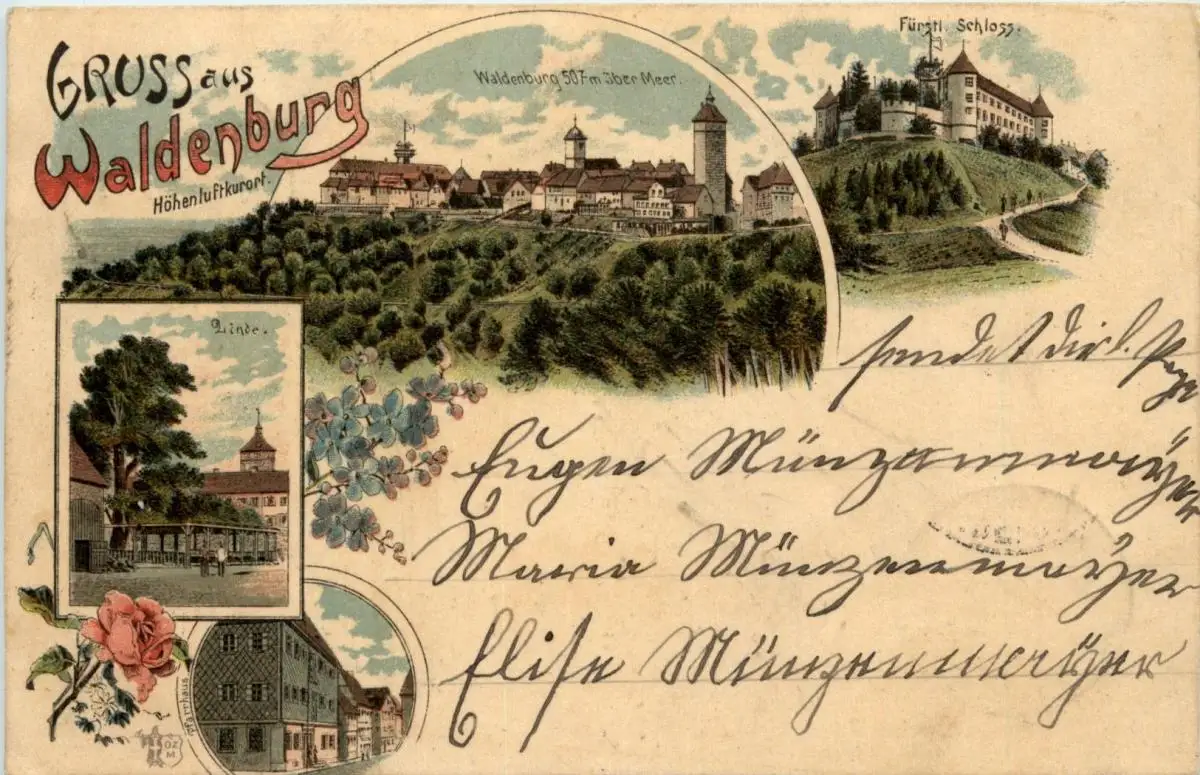 GRUSS aus
Waldenburg
Höhenluftkurort.
Waldenburg 507 m über Meer.
Fürstl. Schloss.
Linde.
Pfarrhaus
OZM
sendet dir l.
Eugen Münzenmayer
Maria Münzenmayer
Elise Münzenmayer